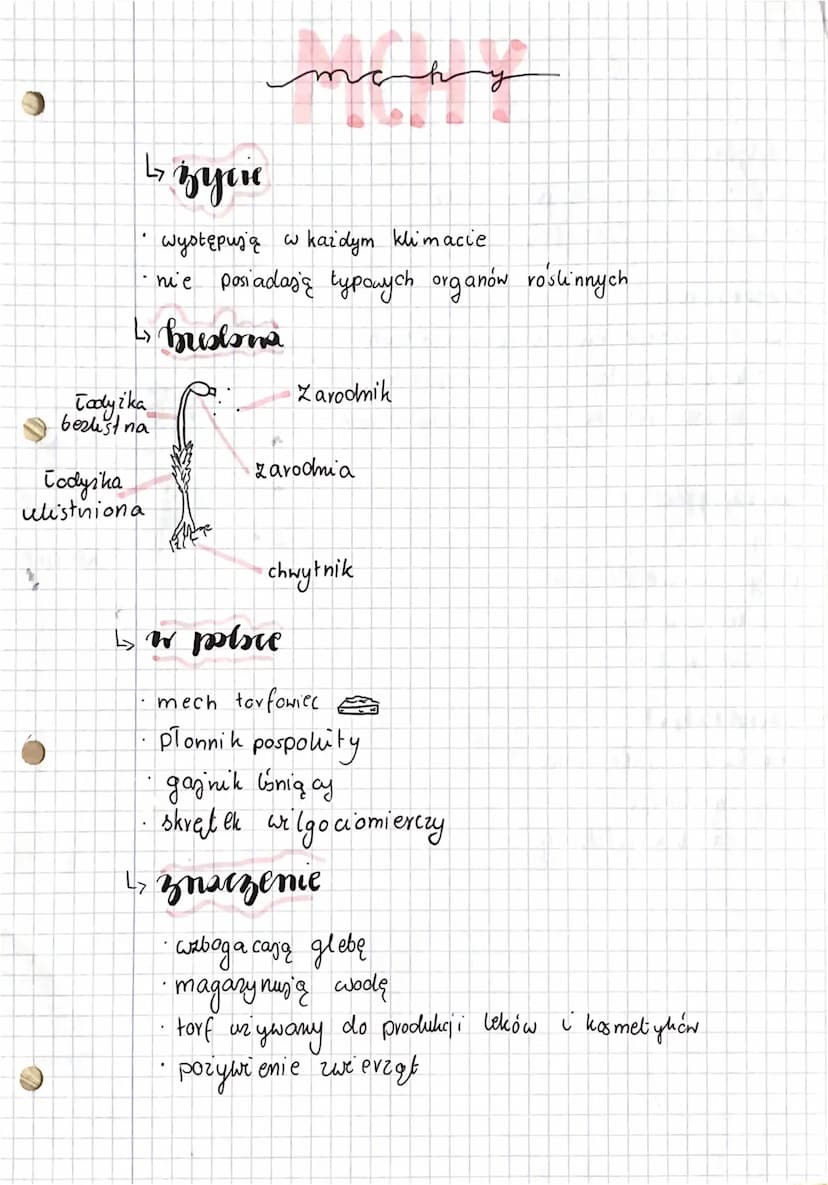 MCHY
mchy
↳ życie
· występują w każdym klimacie
· nie posiadają typowych organów roślinnych
↳ budowa
łodyżka
bezlistna
zarodnik
zarodnia
łodyżka
ulistniona
chwytnik
↳ w polsce
· mech torfowiec
· płonnik pospolity
· gajnik lśniący
· skrętek wilgociomierczy
↳ znaczenie
· wzbogacają glebę
· magazynują wodę
· torf używany do produkcji leków i kosmetyków
· pożywienie zwierząt